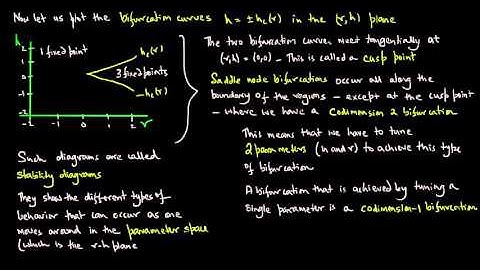 Now let us plot the bifurcation curves h = ±hc(r) in the (r,h) plane
h
2
1
0
-1
-2
-2 -1 0 1 2 r
1 fixed point
hc(r)
3 fixed points
-hc(r)
Such diagrams are called
stability diagrams
They show the different types of
behavior that can occur as one
moves around in the parameter space
(which is the r-h plane
The two bifurcation curves meet tangentially at
(r,h) = (0,0) - This is called a cusp point
Saddle node bifurcations occur all along the
boundary of the regions - except at the cusp point
- where we have a codimension 2 bifurcation
This means that we have to tune
2 parameters (h and r) to achieve this type
of bifurcation
A bifurcation that is achieved by tuning a
single parameter is a codimension-1 bifurcation